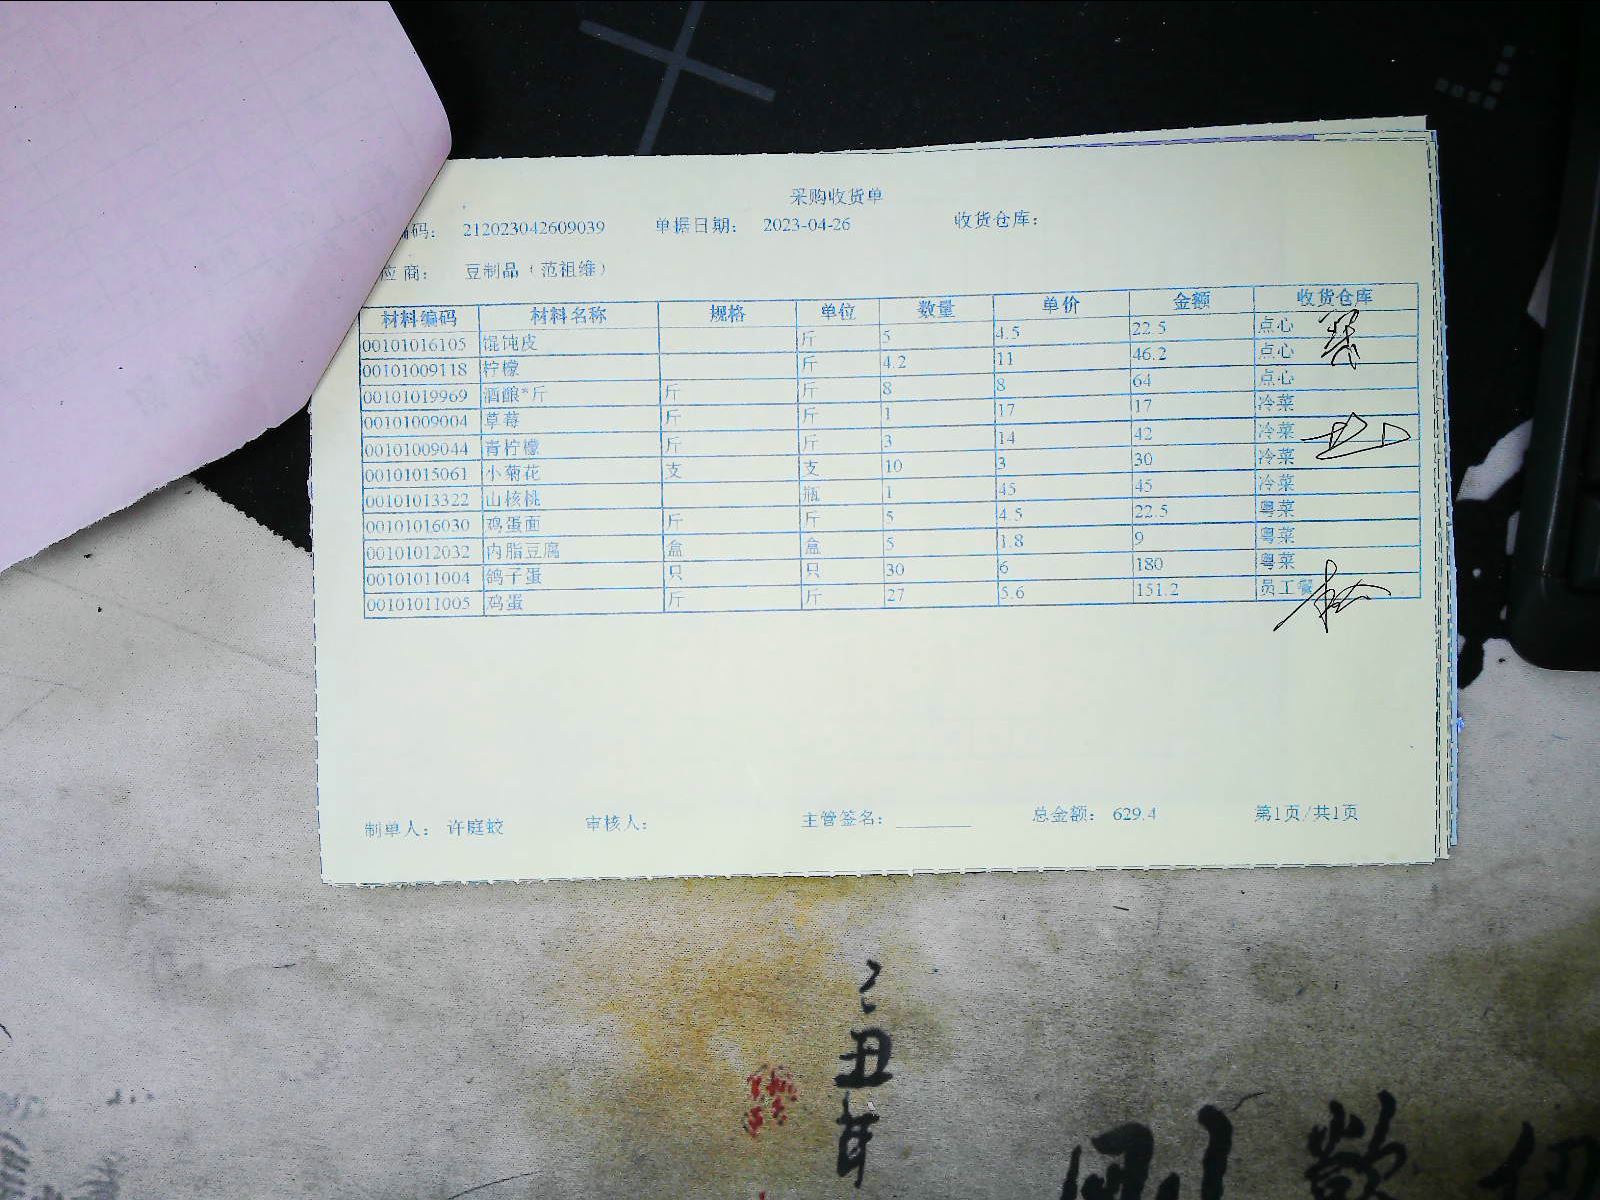 采购收货单
编码： 212023042609039 单据日期： 2023-04-26 收货仓库：
应 商： 豆制品（范祖维）
材料编码 材料名称 规格 单位 数量 单价 金额 收货仓库
00101016105 馄饨皮 斤 5 4.5 22.5 点心
00101009118 柠檬 斤 4.2 11 46.2 点心
00101019969 酒酿*斤 斤 斤 8 8 64 点心
00101009004 草莓 斤 斤 1 17 17 冷菜
00101009044 青柠檬 斤 斤 3 14 42 冷菜
00101015061 小菊花 支 支 10 3 30 冷菜
00101013322 山核桃 瓶 1 45 45 冷菜
00101016030 鸡蛋面 斤 斤 5 4.5 22.5 粤菜
00101012032 内脂豆腐 盒 盒 5 1.8 9 粤菜
00101011004 鸽子蛋 只 只 30 6 180 粤菜
00101011005 鸡蛋 斤 斤 27 5.6 151.2 员工餐
制单人： 许庭蛟 审核人： 主管签名： ________ 总金额： 629.4 第1页/共1页